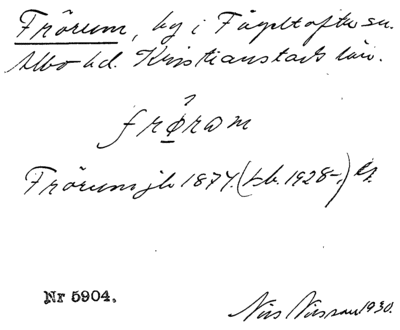 Frörum, by i Fågeltofta sn.
Albo hd. Kristianstads län.
frø̱rωm
Frörum jb 1874. (tb. 1928-,)
Nr 5904.
Nils Nilsson 1930.